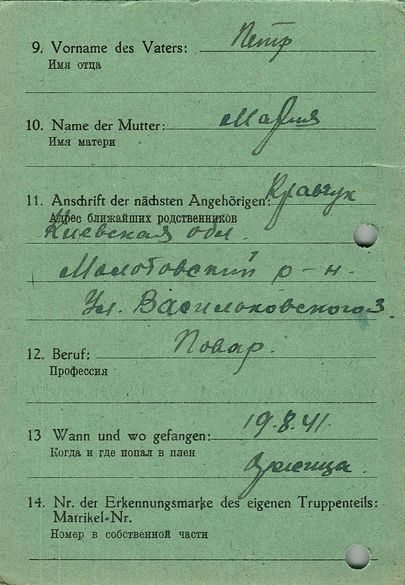 9. Vorname des Vaters: Петр
Имя отца
10. Name der Mutter: Мария
Имя матери
11. Anschrift der nächsten Angehörigen: Кравчук
Адрес ближайших родственников
Киевская обл.
Молотовский р-н.
Ул. Васильковского 3
12. Beruf: Повар.
Профессия
13 Wann und wo gefangen: 19.8.41.
Когда и где попал в плен
14. Nr. der Erkennungsmarke des eigenen Truppenteils:
Matrikel-Nr.
Номер в собственной части